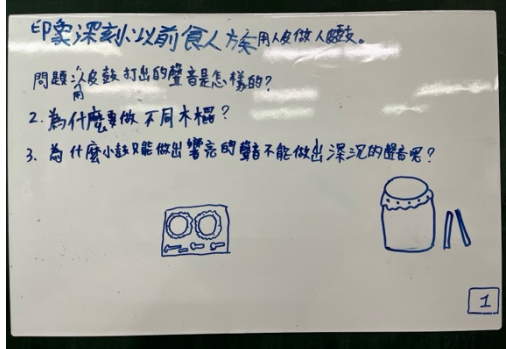 印象深刻:以前食人族用人皮做人皮鼓。
問題:人皮鼓打出的聲音是怎樣的?
2.為什麼要做不同木棍?
3.為什麼小鼓只能做出響亮的聲音不能做出深沉的聲音呢?
1